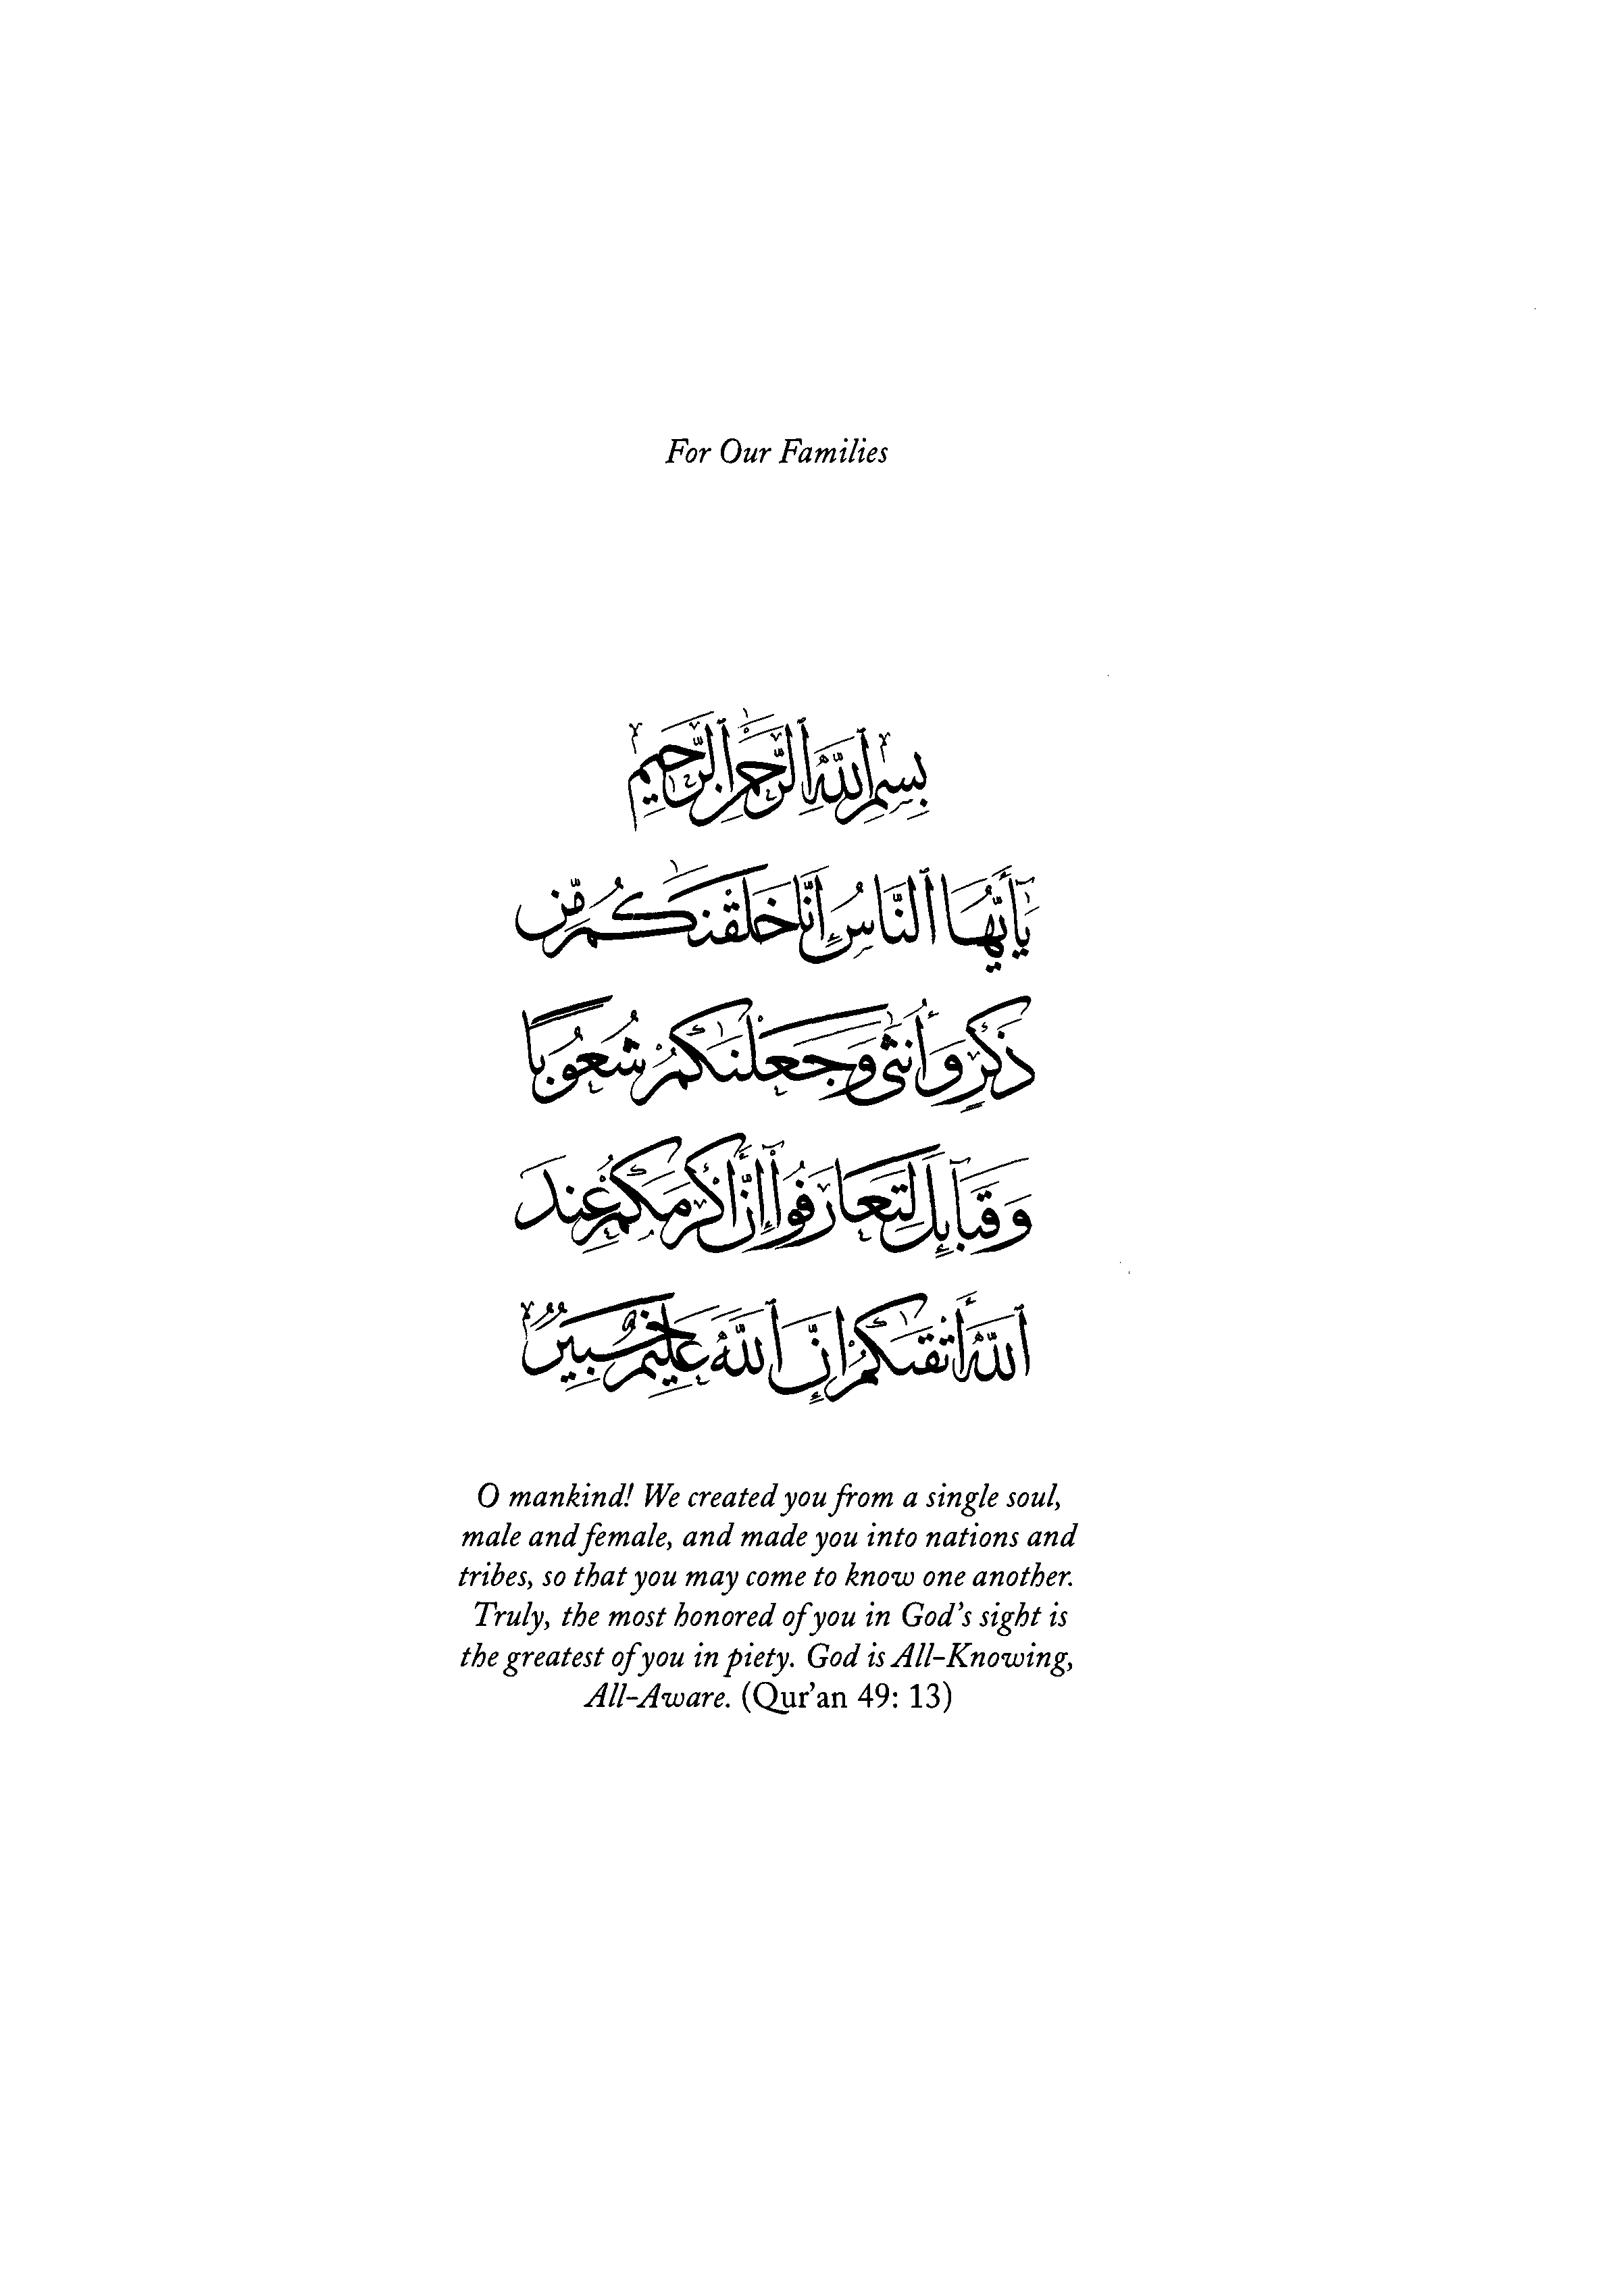 For Our Families
بِسْمِ ٱللَّهِ ٱلرَّحْمَٰنِ ٱلرَّحِيمِ
يَٰٓأَيُّهَا ٱلنَّاسُ إِنَّا خَلَقْنَٰكُم مِّن
ذَكَرٍ وَأُنثَىٰ وَجَعَلْنَٰكُمْ شُعُوبًا
وَقَبَآئِلَ لِتَعَارَفُوٓا۟ إِنَّ أَكْرَمَكُمْ عِندَ
ٱللَّهِ أَتْقَىٰكُمْ إِنَّ ٱللَّهَ عَلِيمٌ خَبِيرٌ
O mankind! We created you from a single soul,
male and female, and made you into nations and
tribes, so that you may come to know one another.
Truly, the most honored of you in God's sight is
the greatest of you in piety. God is All-Knowing,
All-Aware. (Qur'an 49: 13)